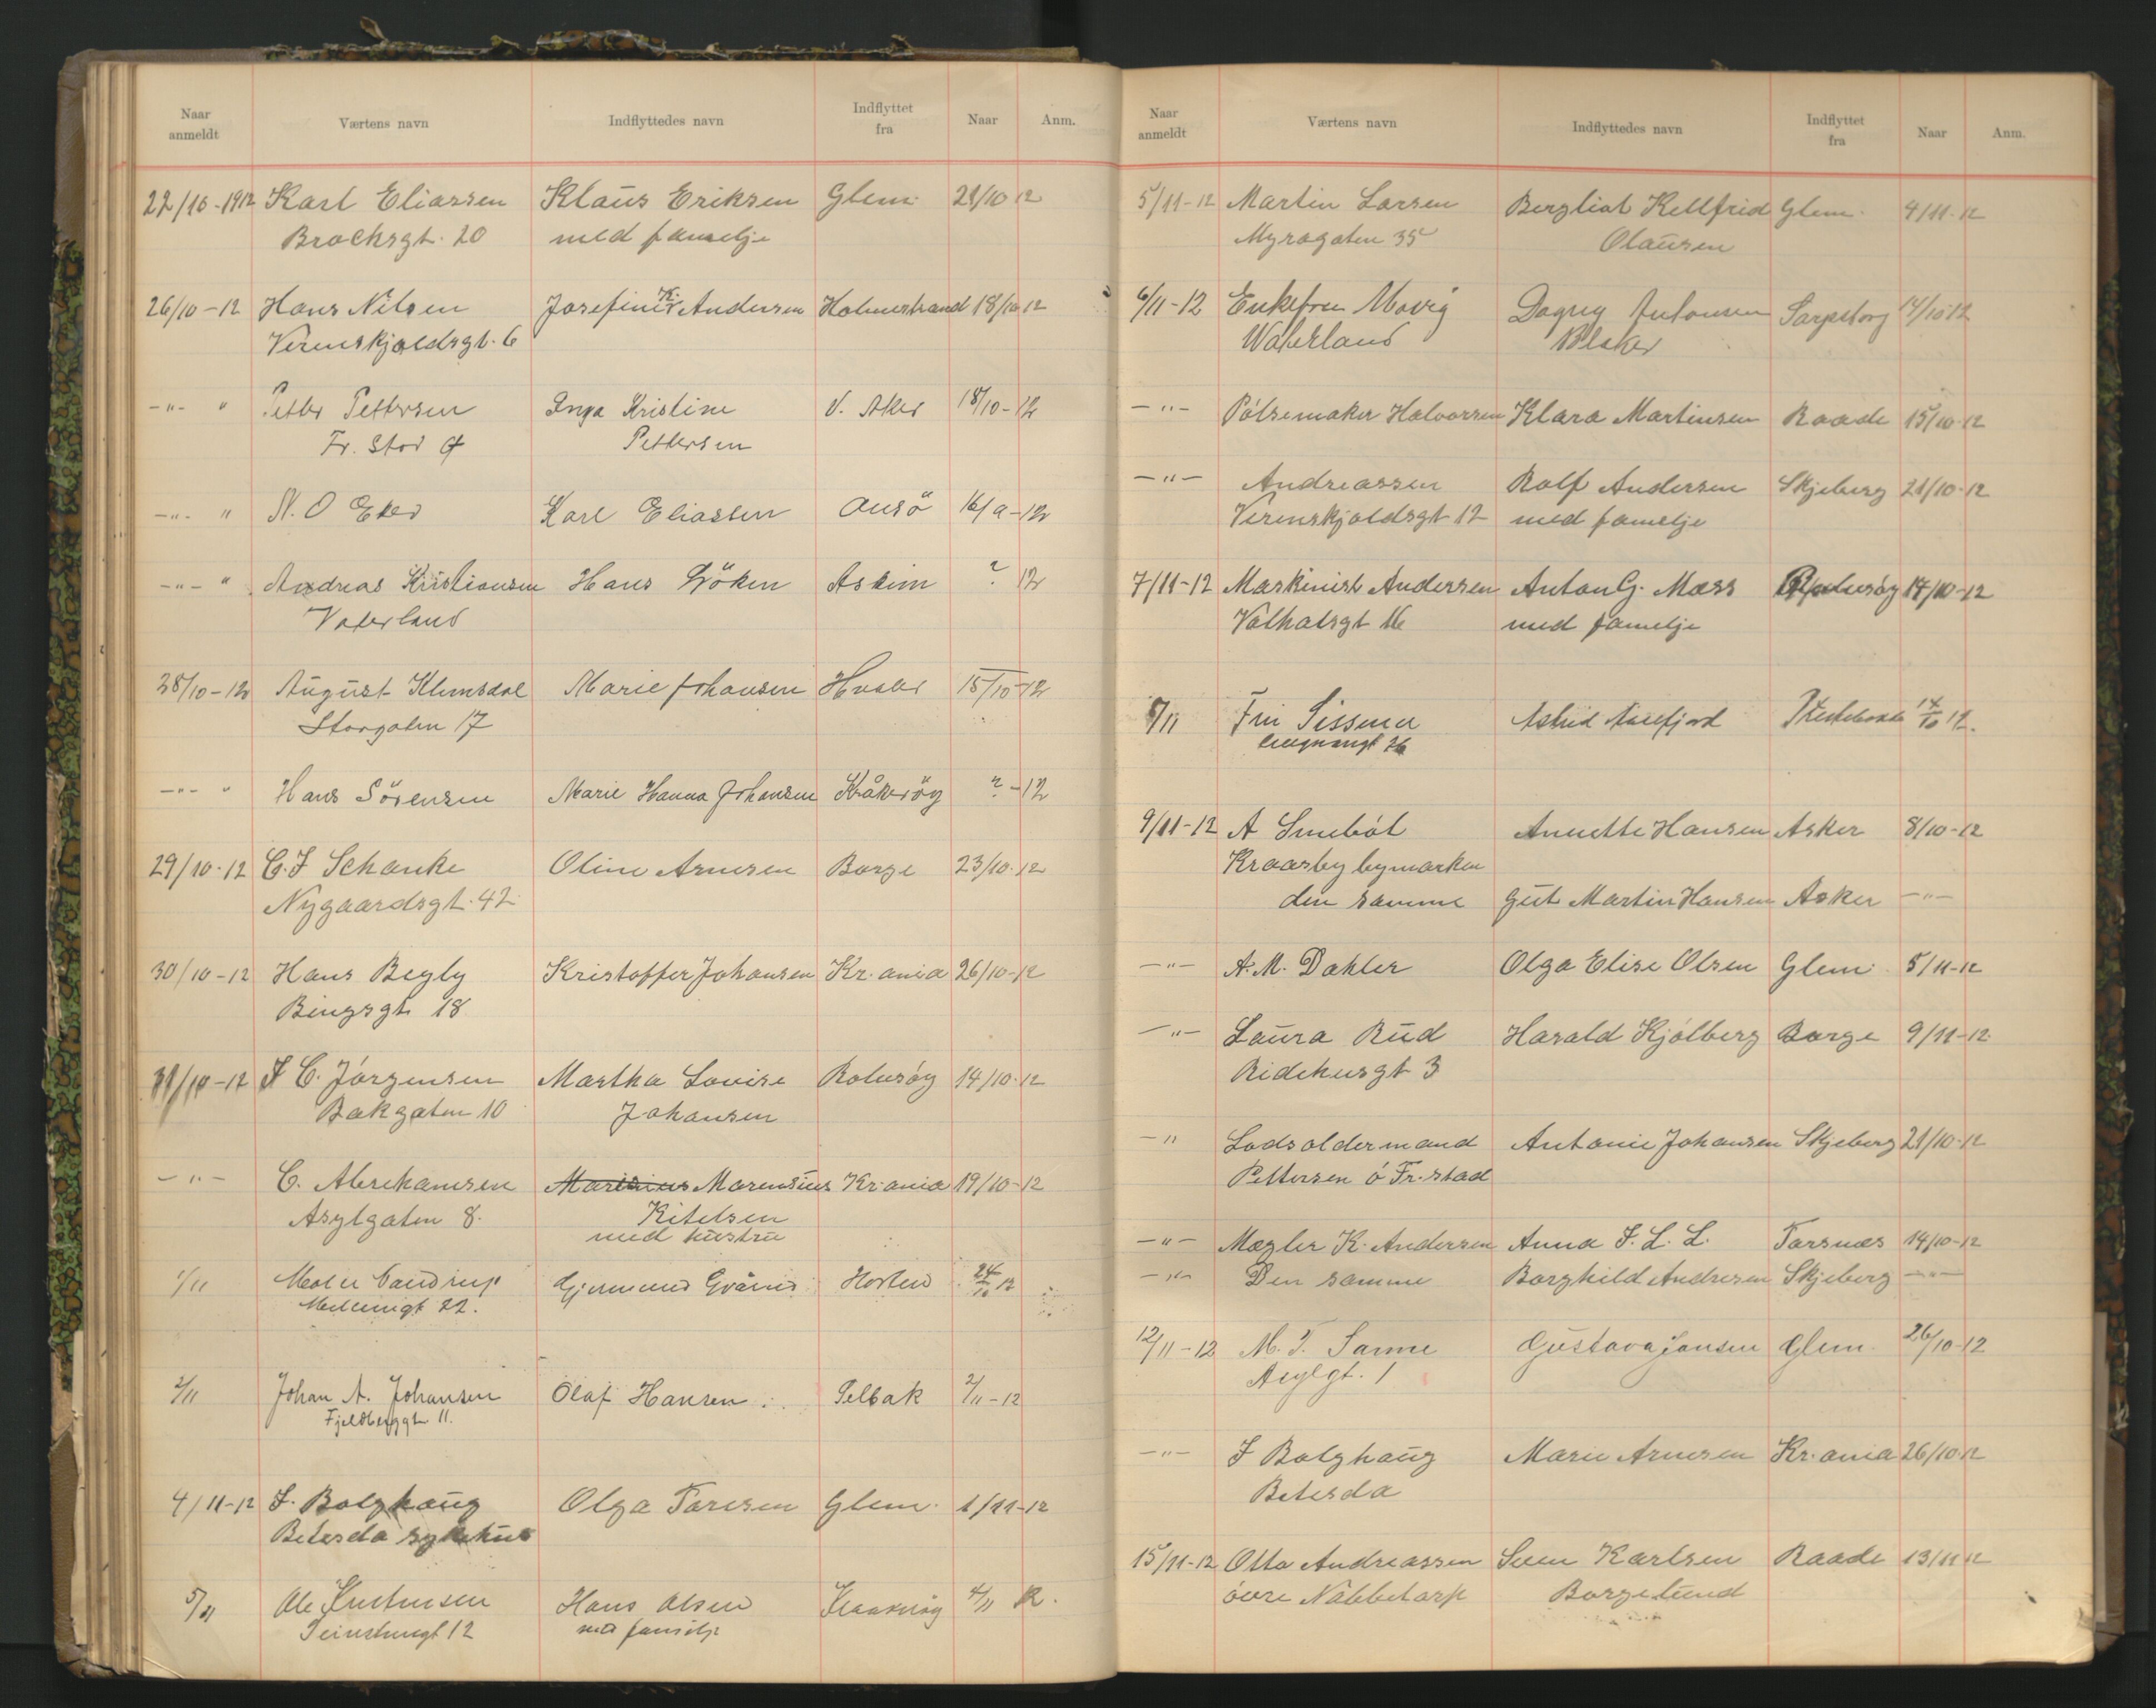 Naar anmeldt Værtens navn Indflyttedes navn Indflyttet fra Naar Anm.
22/10-1912 Karl Eliassen Klaus Eriksen Glem. 21/10 12
Brochsgt. 20 med famelje
26/10-12 Hans Nilsen Josefine K. Andersen Holmestrand 18/10 12
Verenskjoldsgt. 6
-"- " Petter Pettersen Inga Kristine V. Aker 18/10-12
Fr. Stad Pettersen
-"- " N. O Eker Karl Eliassen Onsö 16/9-12
-"- " Andreas Kristiansen Hans Askim ? 12
Vaterland
28/10-12 August Klemsdal Marie Johansen Hvaler 15/10-12
Storgaten 17
-"- " Hans Sörensen Marie Hanna Johansen Kråkeröy ?-12
29/10-12 C. F Schanke Oline Arnesen Borge 23/10-12
Nygaardsgt. 42
30/10-12 Hans Begby Kristoffer Johansen Kr.ania 26/10-12
Bingsgt 18
31/10-12 F C. Jörgensen Martha Lovise Rolvsöy 14/10-12
Bakgaten 10 Johansen
-"- C. Abrahamsen Marensius Kr.ania 19/10-12
Asylgaten 8. Kitelsen
med hustru
1/11 Horten 24/10 12
22.
2/11 Johan A. Johansen Olaf Hansen Selbak 2/11-12
Fjeldberggt 11.
4/11-12 Bolghaug Olga Toresen Glem. 1/11-12
Betesda sykehus
5/11 Ole Hans Olsen Kraakeröy 4/11 12.
12 med familje
Naar anmeldt Værtens navn Indflyttedes navn Indflyttet fra Naar Anm.
5/11-12 Martin Larsen Bergliot Kellfrid Glem. 4/11-12
Myragaten 35 Olausen
6/11-12 Enkefru Movig Dagny Antonsen Sarpsborg 14/10 12
Waterland
-"- Pölsemaker Halvorsen Klara Martinsen Raade 15/10-12
-"- Andreassen Rolf Andersen Skjeberg 21/10-12
Verenskjoldsgt 12 med famelje
7/11-12 Maskinist Andersen Anton G. Mass Rolvsöy 14/10-12
Valhalsgt 16 med famelje
Astrid 14/10 12.
26
9/11-12 A Smeböl Annette Hansen Asker 8/10-12
Kraasby bymarken
den samme gut Martin Hansen Asker -"-
-"- A. M. Dahler Olga Elise Olsen Glem. 5/11-12
-"- Laura Rud Harald Kjölberg Borge 9/11-12
Ridehusgt 3
-" Lodsoldermand Antonie Johansen Skjeberg 21/10-12
Pettersen ö Fr.stad
-"- Mægler K. Andersen Anna F. L. L. Torsnæs 14/10-12
-"- Den samme Borghild Andresen Skjeberg -"-
12/11-12 M. T. Sanne Gustava Jansen Glem. 26/10-12
Asylgt. 1
-"- Bolghaug Marie Arnesen Kr.ania 26/10 12
Betesda
15/11-12 Otto Andreassen Karlsen Raade 13/11 12
övre Nabbetorp Borgelund